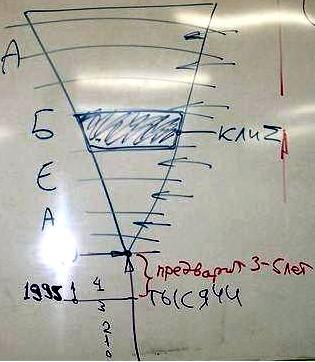 А
Б
КЛИZ
Е
А
предварит 3-5 лет
1995 1 4
ТЫСЯЧИ
3
2
1
0